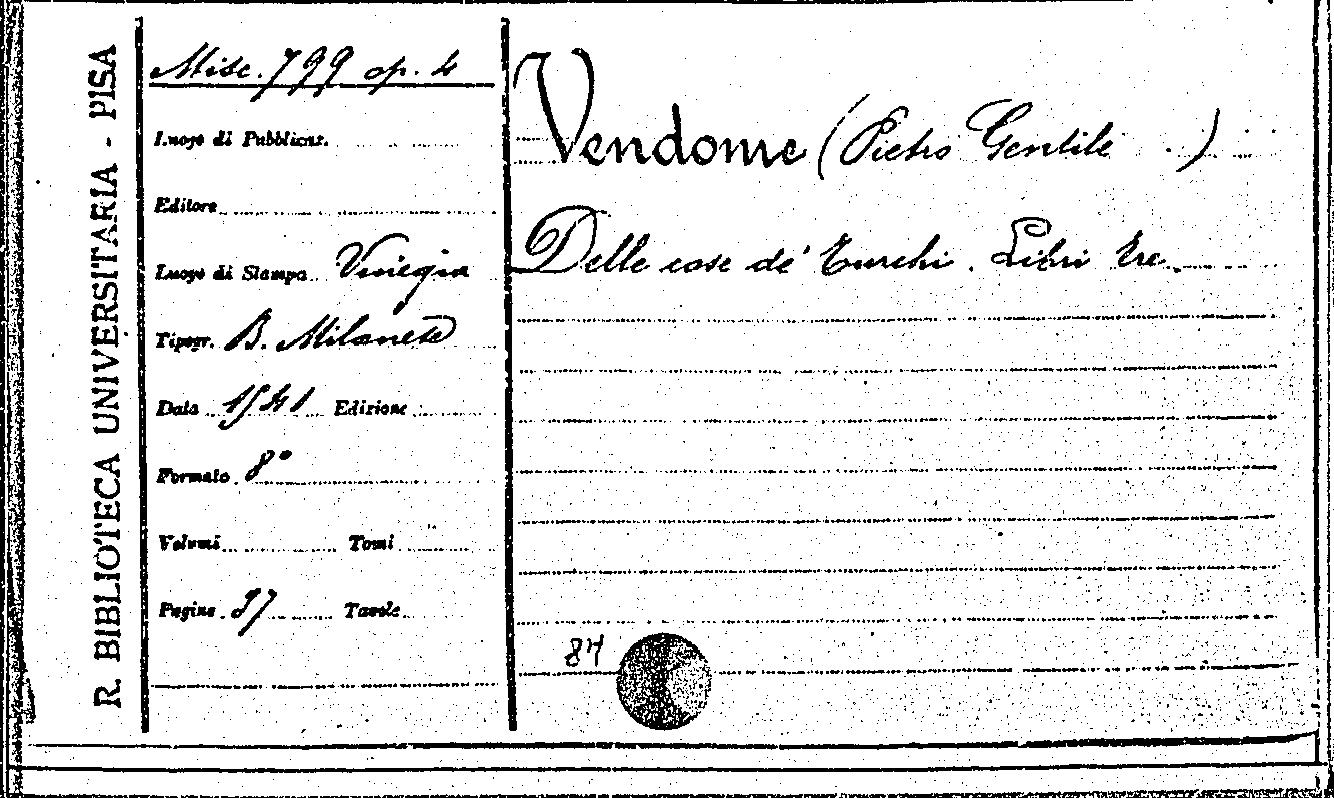 R. BIBLIOTECA UNIVERSITARIA - PISA
Misc. 799 op. 4
Luogo di Pubblicaz.
Editore
Luogo di Stampa Vinegia
Tipogr. B. Milanese
Data 1541 Edizione
Formato 8°
Volumi Tomi
Pagine 97 Tavole
Vendome (Pietro Gentile )
Delle cose de' Turchi. Libri tre
84